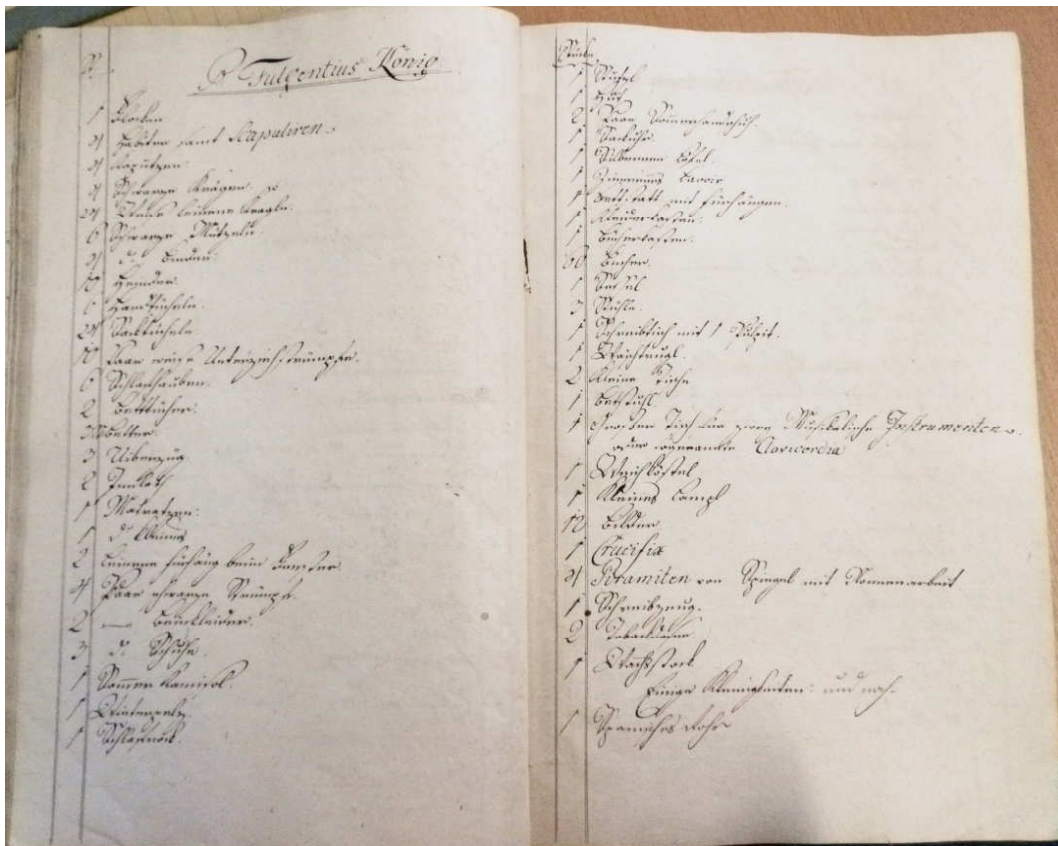 P. Fulgentius König
1 Flocken
4 Habiter samt Scapuliren
4 Kaputzen.
4 Schwarze Krägen.
24 leinene Kragln.
6 Schwarze Mützeln.
4 do Binden.
10 Hemder.
6 Handtücheln.
24 Sacktücheln.
10 Paar weiße Unterziehstrümpfe.
6 Schlafhauben.
2 Betttücher.
3 Uiberzüg
2
1 Matratzen.
1 do kleines
2 leinene fürhäng beim Fenster.
4 Paar schwarze Strümpf.
2 — Beinkleider.
3 do Schuhe.
1 Sommer Kamisol.
1 Winterpelz.
1 Schlafrock.
Stücke
1 Stiefel
1 Hut
2 Paar Sommerhandschuh.
1 Sackuhr.
1 Silbernen Löfel.
1 Zinnernes Lavoir
1 Bettstatt mit fürhängen.
1 Kleiderkasten.
1 Bücherkasten.
60 Bücher.
1 Sessel
3 Stühle.
1 Schreibtisch mit 1 Pulpit.
1
2 Kleine Tische
1 Betstuhl.
1 Großer Tisch zwey Musikalische Instrumenten
oder Clavicordia
1 Weichkössel
1 Kleines Lampl
12 Bilder
1 Crucifix
4 Piramiten von Spiegel mit Nonnenarbeit
1 Schreibzeug.
2
1 Wachsstock
Einige Kleinigkeiten: und noch.
1 Spanisches Rohr